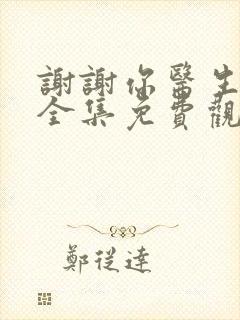 謝謝你醫生
全集免費觀
鄭從達